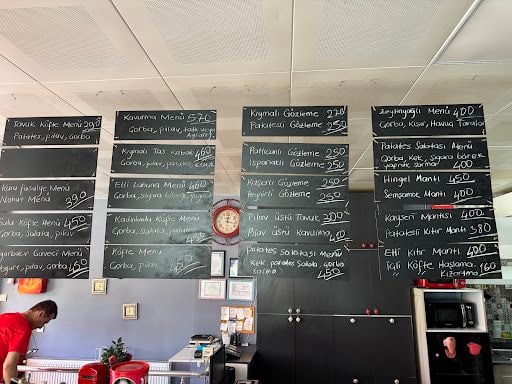 Tavuk Köfte Menü 390
Patates, pilav, Çorba
Kuru fasulye Menü
Nohut Menü 390
Sulu Köfte Menü 450
Çorba, Salata, pilav
Güveci Menü
Yoğurt, pilav, Çorba 450
Kavurma Menü 570
Çorba, pilav, tatlı veya
Kıymalı Tas Kebabı 460
Çorba, pilav, patates, çaçık
Etli Lahana Menü 460
Çorba, sigara böreği, yoğurt
Kadınbudu Köfte Menü
Çorba, Salata, pilav 450
Köfte Menü
Çorba, pilav, Salata 450
Kıymalı Gözleme 270
Patatesli Gözleme 250
Patlıcanlı Gözleme 250
Ispanaklı Gözleme 250
Kaşarlı Gözleme 250
Peynirli Gözleme 250
Pilav üstü Tavuk 300
Pilav üstü kavurma 450
Patates Salatası Menü
Kek, patates Salata, Çorba
Sarma 450
Zeytinyağlı Menü 400
Çorba, Kısır, Havuç Tarator
Patates Salatası Menü
Çorba, Kek, Sigara börek
yaprak sarma 400
Hingel Mantı 450
Semçamak Mantı 400
Kayseri Mantısı 400
Patatesli Kıtır Mantı 380
Etli Kıtır Mantı 400
İçli Köfte Haşlama 160
" " Kızartma